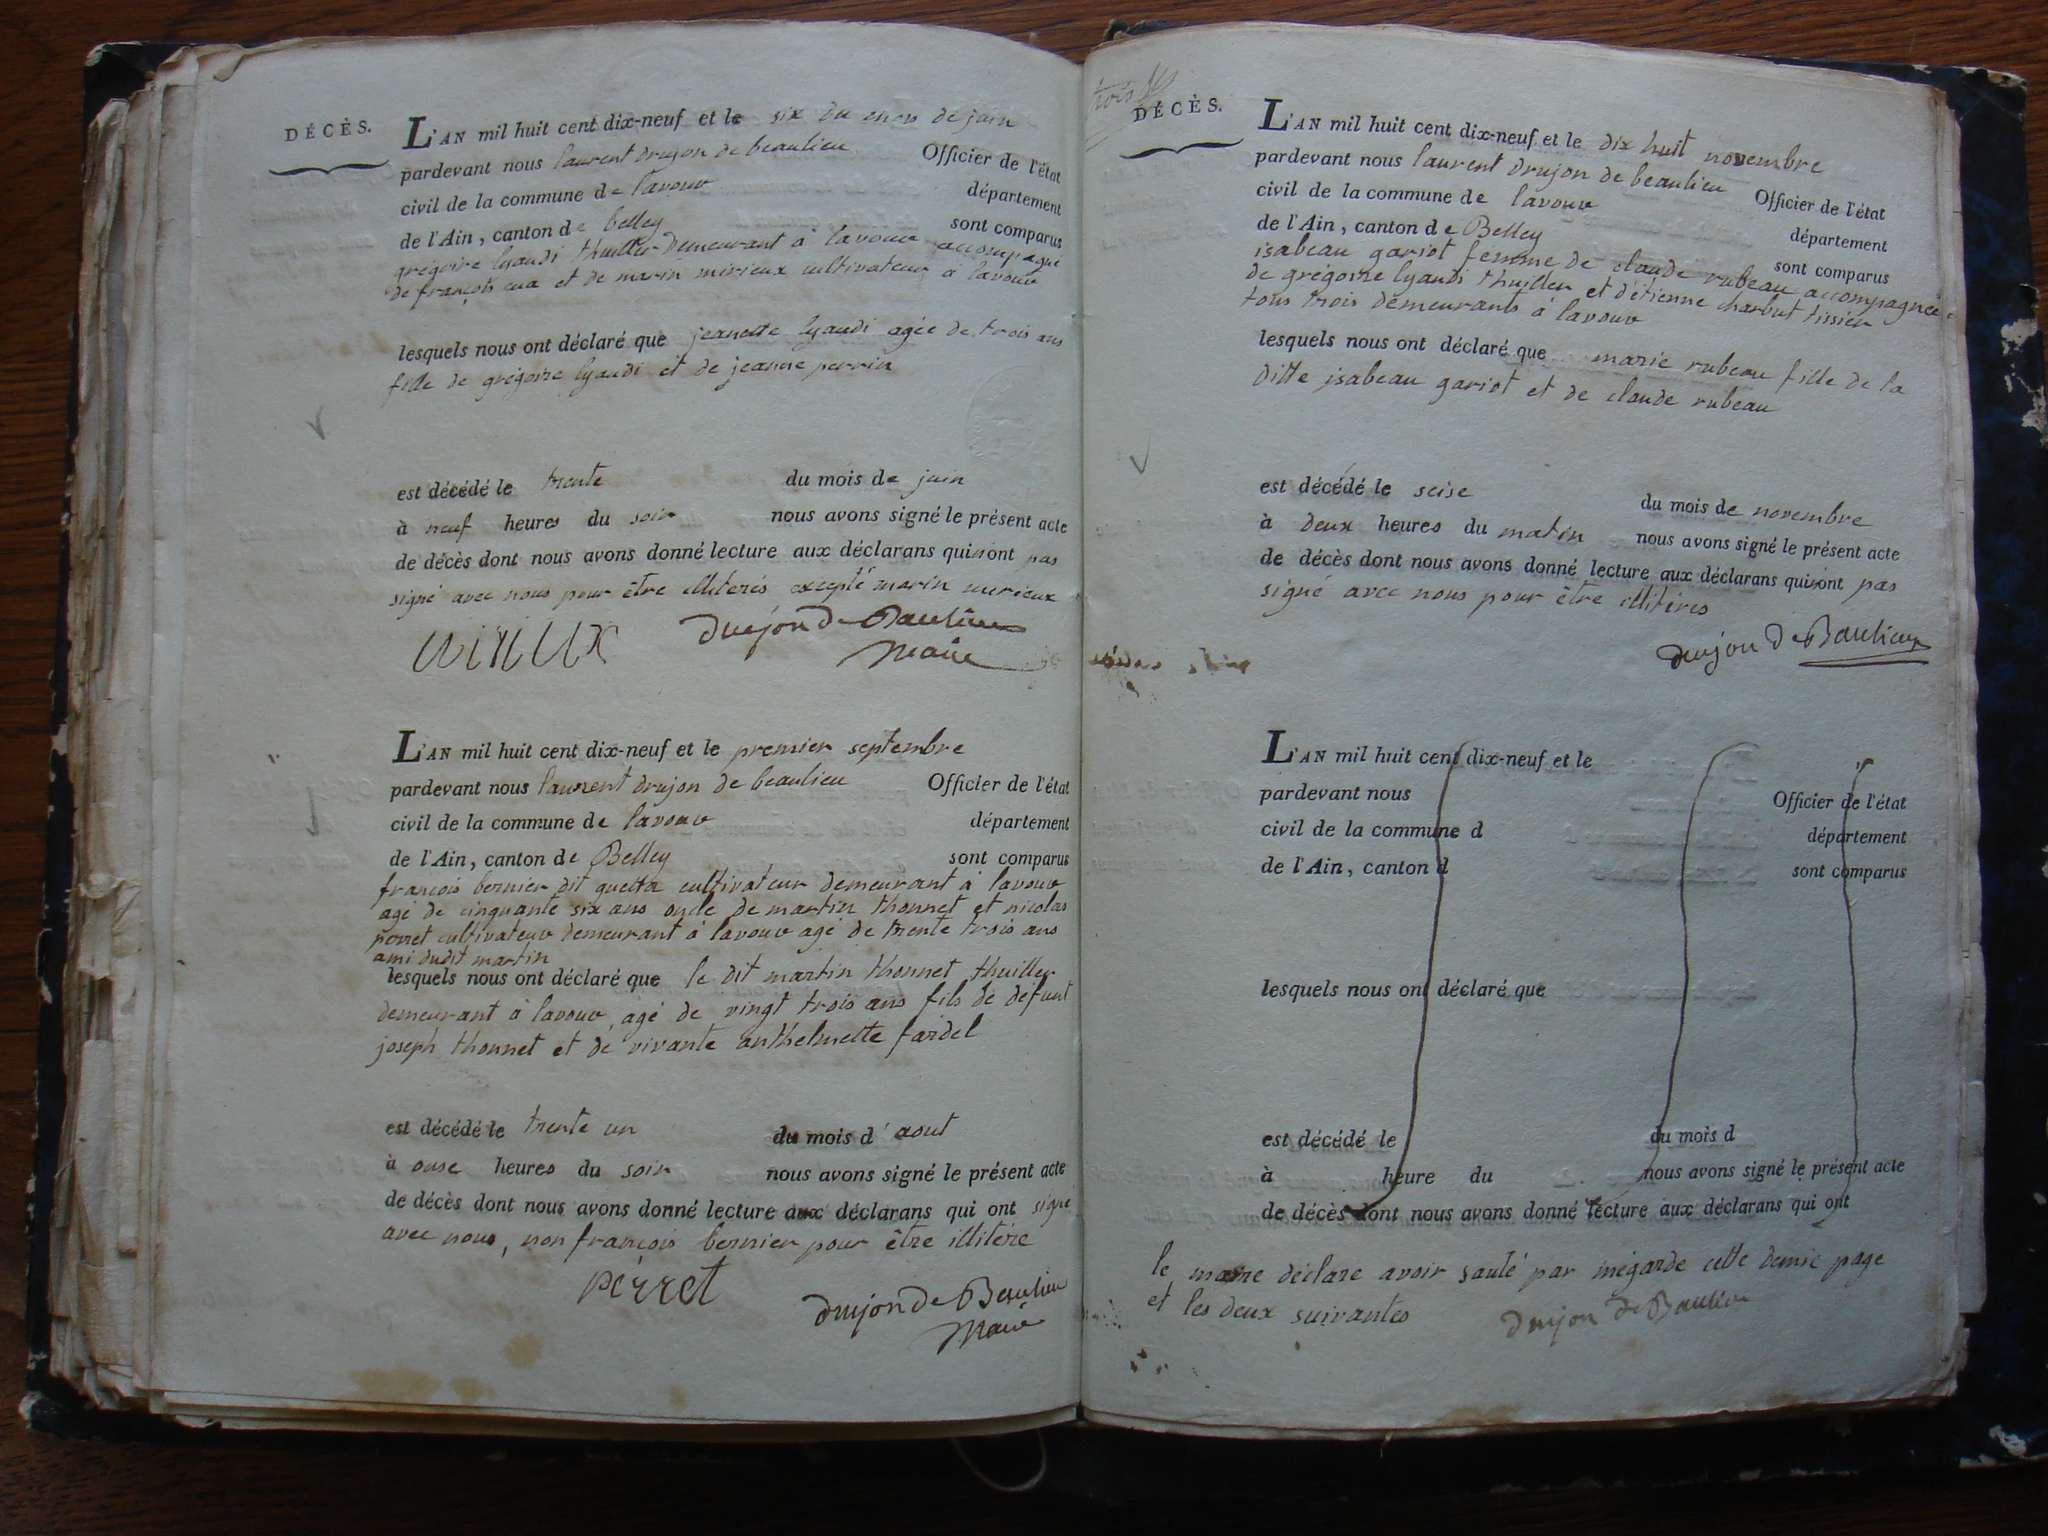 DÉCÈS.
L'AN mil huit cent dix-neuf et le six du mois de juin
pardevant nous laurent drujon de beaulieu Officier de l'état
civil de la commune de lavour département
de l'Ain, canton de belley sont comparus
grégoire lyaudi thuillier demeurant à lavour accompagné
de françois cua et de marin mirieux cultivateur à lavour
lesquels nous ont déclaré que jeanette lyaudi agée de trois ans
fille de grégoire lyaudi et de jeanne perrin
est décédé le trente du mois de juin
à neuf heures du soir nous avons signé le présent acte
de décès dont nous avons donné lecture aux déclarans qui n'ont pas
signé avec nous pour être illiterés excepté marin mirieux
drujon de Baulieu
Maire
L'AN mil huit cent dix-neuf et le premier septembre
pardevant nous laurent drujon de beaulieu Officier de l'état
civil de la commune de lavour département
de l'Ain, canton de Belley sont comparus
françois bernier dit quetta cultivateur demeurant à lavour
agé de cinquante six ans oncle de martin thonnet et nicolas
perret cultivateur demeurant à lavour agé de trente trois ans
ami dudit martin
lesquels nous ont déclaré que le dit martin thonnet thuiller
demeurant à lavour, agé de vingt trois ans fils de défunt
joseph thonnet et de vivante anthelmette fardel
est décédé le trente un du mois d'aout
à onse heures du soir nous avons signé le présent acte
de décès dont nous avons donné lecture aux déclarans qui ont signé
avec nous, non françois bernier pour être illitéré
perret
drujon de Beaulieu
Maire
DÉCÈS.
L'AN mil huit cent dix-neuf et le dix huit novembre
pardevant nous laurent drujon de beaulieu Officier de l'état
civil de la commune de lavour département
de l'Ain, canton de Belley sont comparus
isabeau gariot femme de claude rubeau accompagnée
de grégoire lyaudi thuiller et d'étienne charbut tissier
tous trois demeurants à lavour
lesquels nous ont déclaré que marie rubeau fille de la
ditte isabeau gariot et de claude rubeau
est décédé le seise du mois de novembre
à deux heures du matin nous avons signé le présent acte
de décès dont nous avons donné lecture aux déclarans qui n'ont pas
signé avec nous pour être illitéres
drujon de Baulieu
L'AN mil huit cent dix-neuf et le
pardevant nous Officier de l'état
civil de la commune d département
de l'Ain, canton d sont comparus
lesquels nous ont déclaré que
est décédé le du mois d
à heure du nous avons signé le présent acte
de décès dont nous avons donné lecture aux déclarans qui ont
le maire déclare avoir sauté par mégarde cette demie page
et les deux suivantes drujon de Baulieu